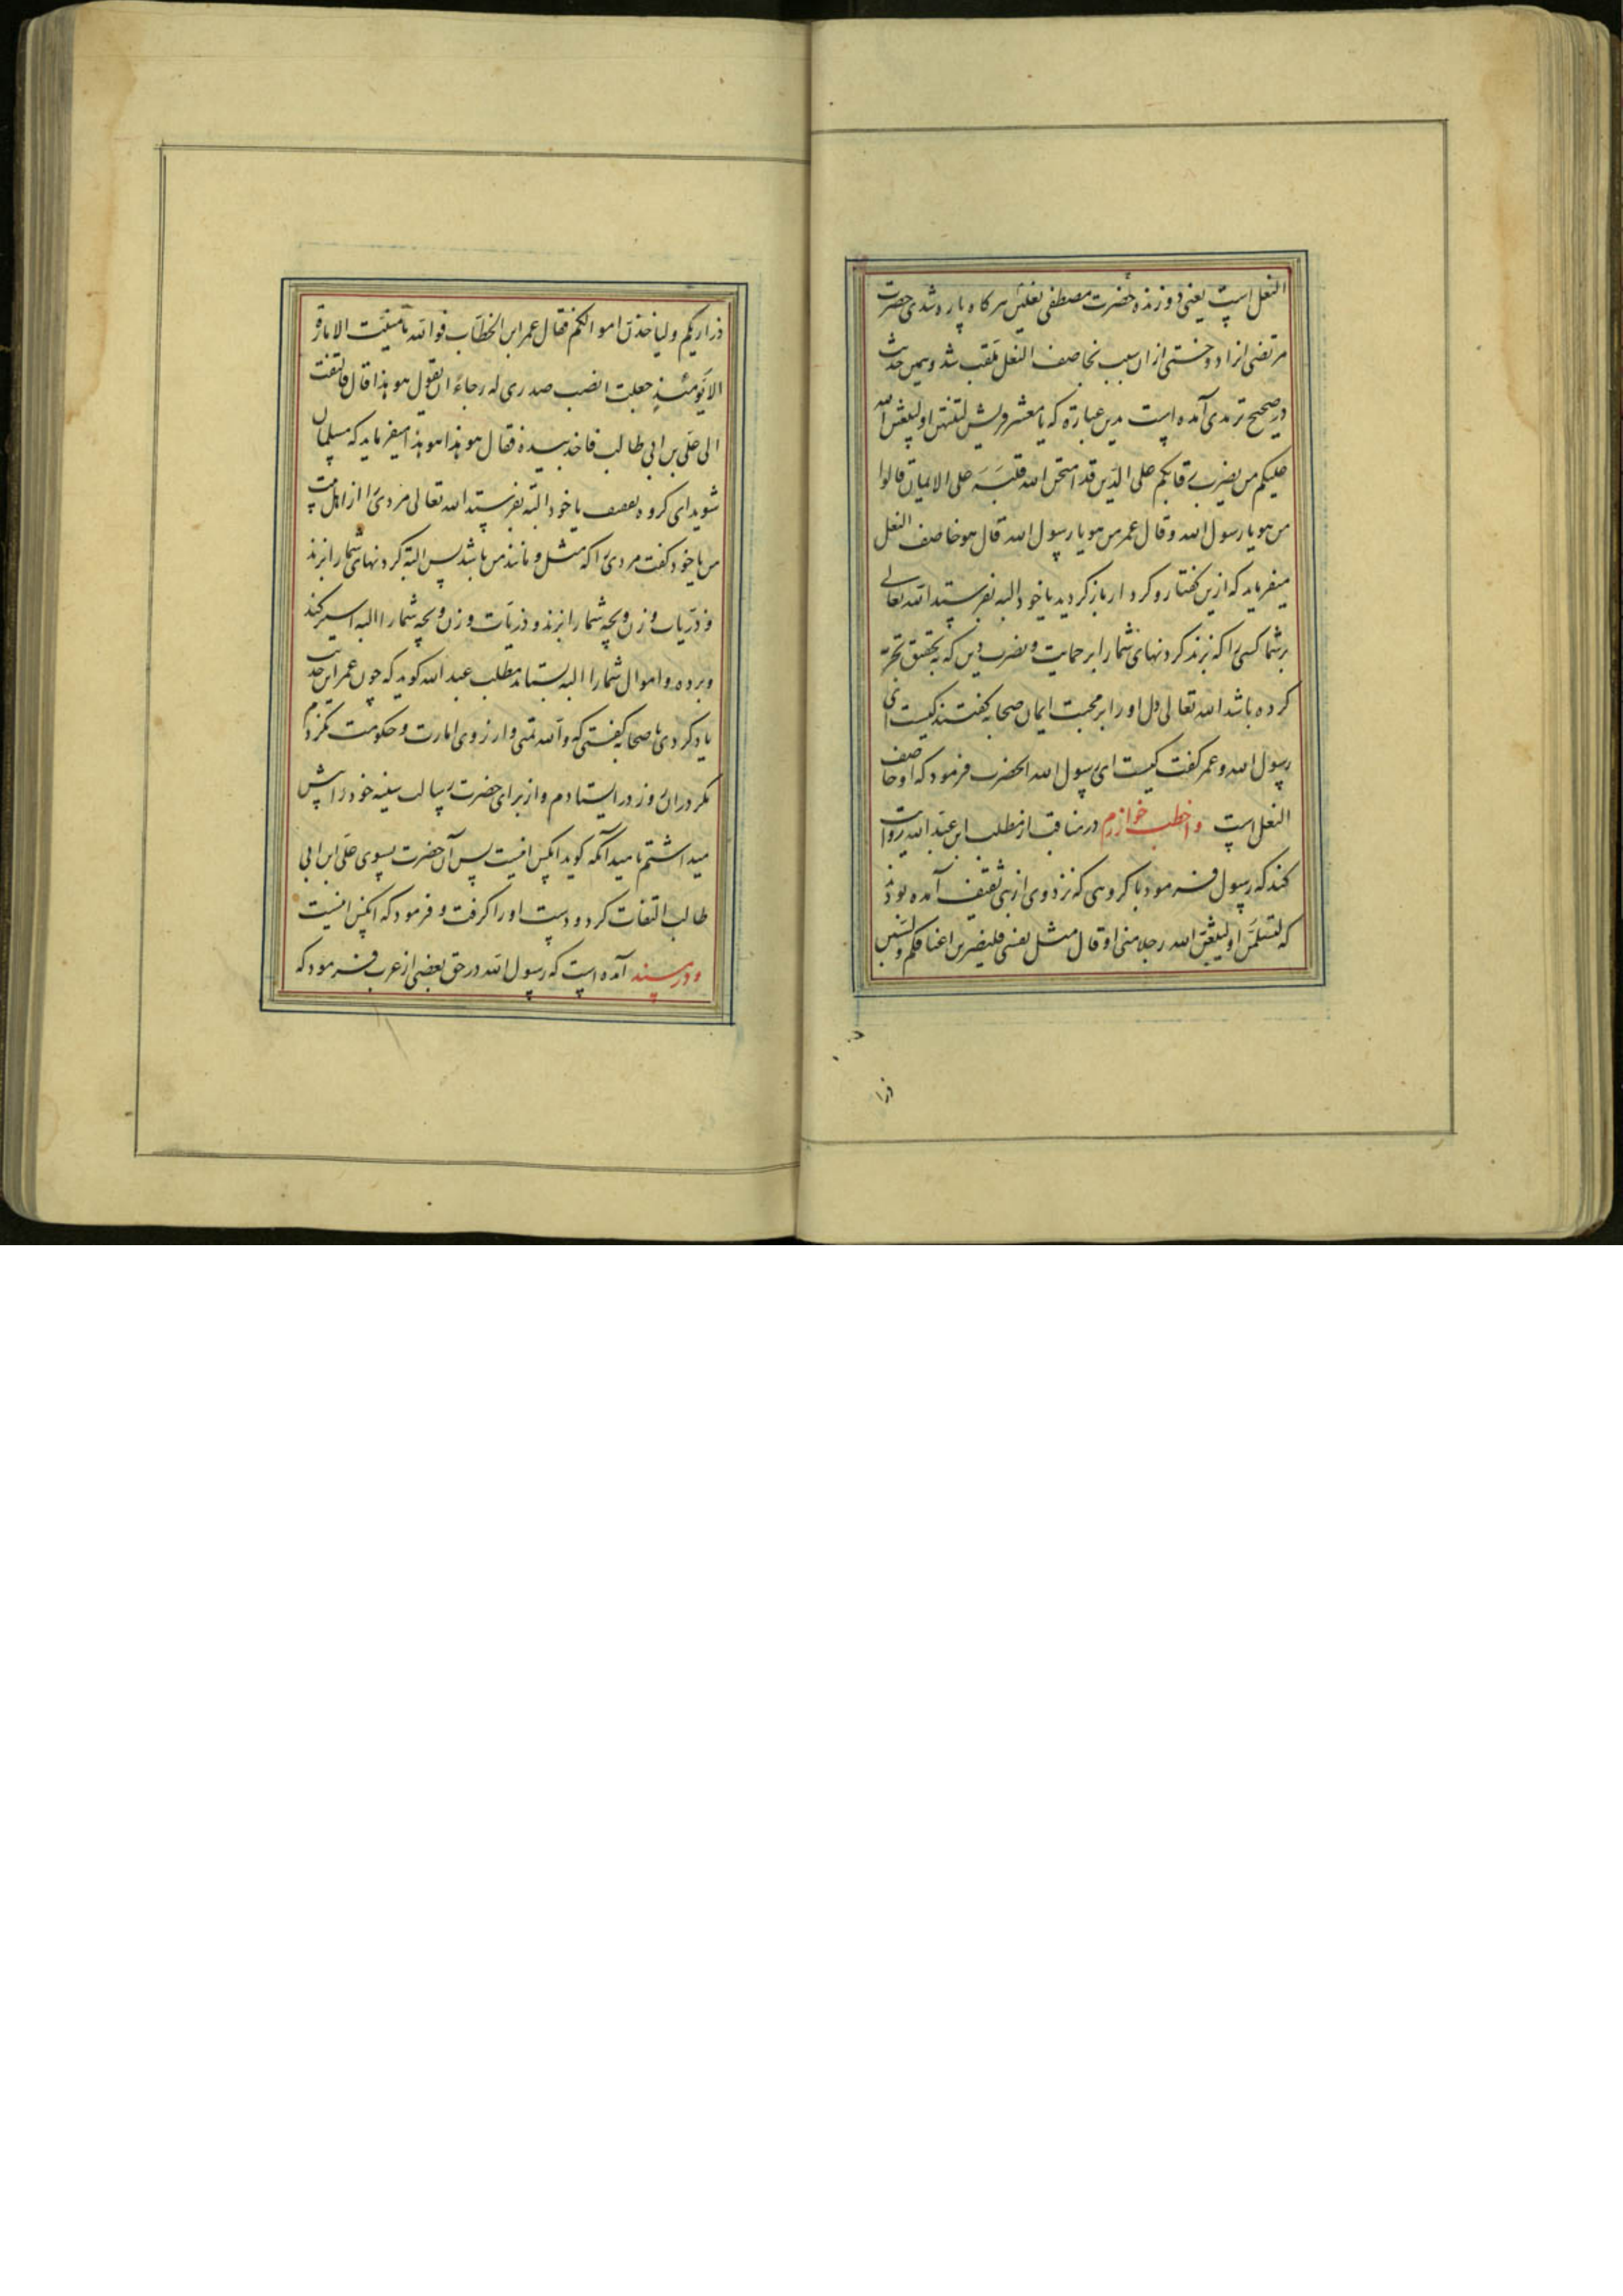 النعل است یعنی دوزنده حضرت مصطفی نعلین هر کاه پاره شدی حضرت
مرتضی انرا دوختی ازان سبب بخاصف النعل ملقب شد و همین حدیث
در صحیح ترمدی آمده است بدین عبارة که یا معشر قریش لتنتهن او لیبعثن الله
علیکم من یضرب رقابکم علی الدین قد امتحن الله قلبه علی الایمان قالوا
من هو یا رسول الله و قال عمر من هو یا رسول الله قال هو خاصف النعل
میفرماید که ازین کفتار و کردار باز کردید یا خود البته بفرستد الله تعالی
بر شما کسی را که بزند کردنهای شمارا بر حمایت و نصرت دین که به تحقیق تجربه
کرده باشد الله تعالی دل او را بر محبت ایمان صحابه کفتند کیست ای
رسول الله و عمر کفت کیست ای رسول الله الحضرت فرمود که او خاصف
النعل است و اخطب خوارزم در مناقب از مطلب ابن عبد الله روایت
کند که رسول فرمود با کروهی که نزد وی از بنی ثقیف آمده بودند
که لتسلمن او لیبعثن الله رجلا منی او قال مثل نفسی فلیضربن اعناقکم و لیسبین
ذراریکم و لیاخذن اموالکم فقال عمر ابن الخطاب فوالله ما تمنیت الامارة
الا یومئذ جعلت انصب صدری له رجاء ان یقول هو هذا قال فالتفت
الی علی بن ابی طالب فاخذ بیده فقال هو هذا هو هذا میفرماید که مسلمان
شوید ای کروه ثقیف یا خود البته بفرستد الله تعالی مردی را از اهل بیت
من یا خود کفت مردی را که مثل و مانند من باشد پس البته کردنهای شمارا بزند
و ذریات و زن و بچه شمارا بزند و ذریات و زن و بچه شمارا البته اسیر کند
و برده و اموال شمارا البته بستاند مطلب عبد الله کوید که چون عمر این حدیث
یاد کردی با صحابه کفتی که والله تمنی و ارزوی امارت و حکومت نکردم
مکر دران روز در ایستادم و از برای حضرت رسالت سینه خود را پیش
میداشتم بامید آنکه کوید اینکس اینست پس آن حضرت بسوی علی ابن ابی
طالب التفات کرد و دست او را کرفت و فرمود که اینکس اینست
و در مسند آمده است که رسول الله در حق بعضی از عرب فرمود که